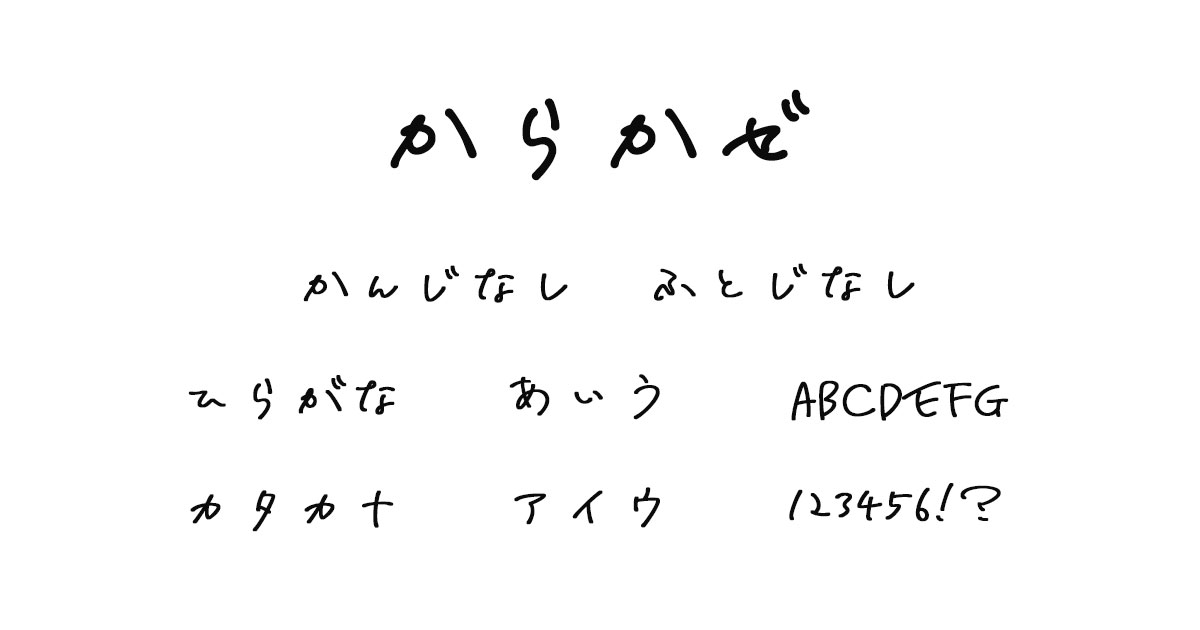 からかぜ
かんじなし ふとじなし
ひらがな あいう ABCDEFG
カタカナ アイウ 123456!?